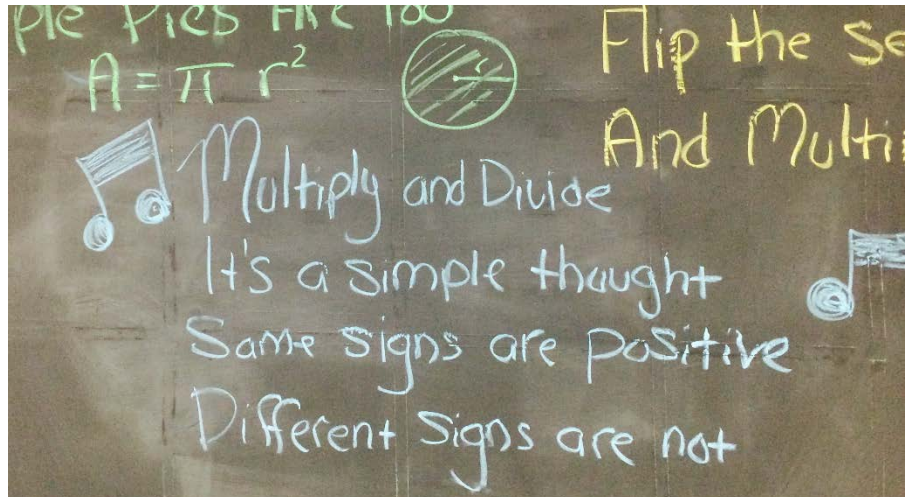 A = π r²
r
Flip the
And
Multiply and Divide
It's a simple thought
Same signs are positive
Different signs are not